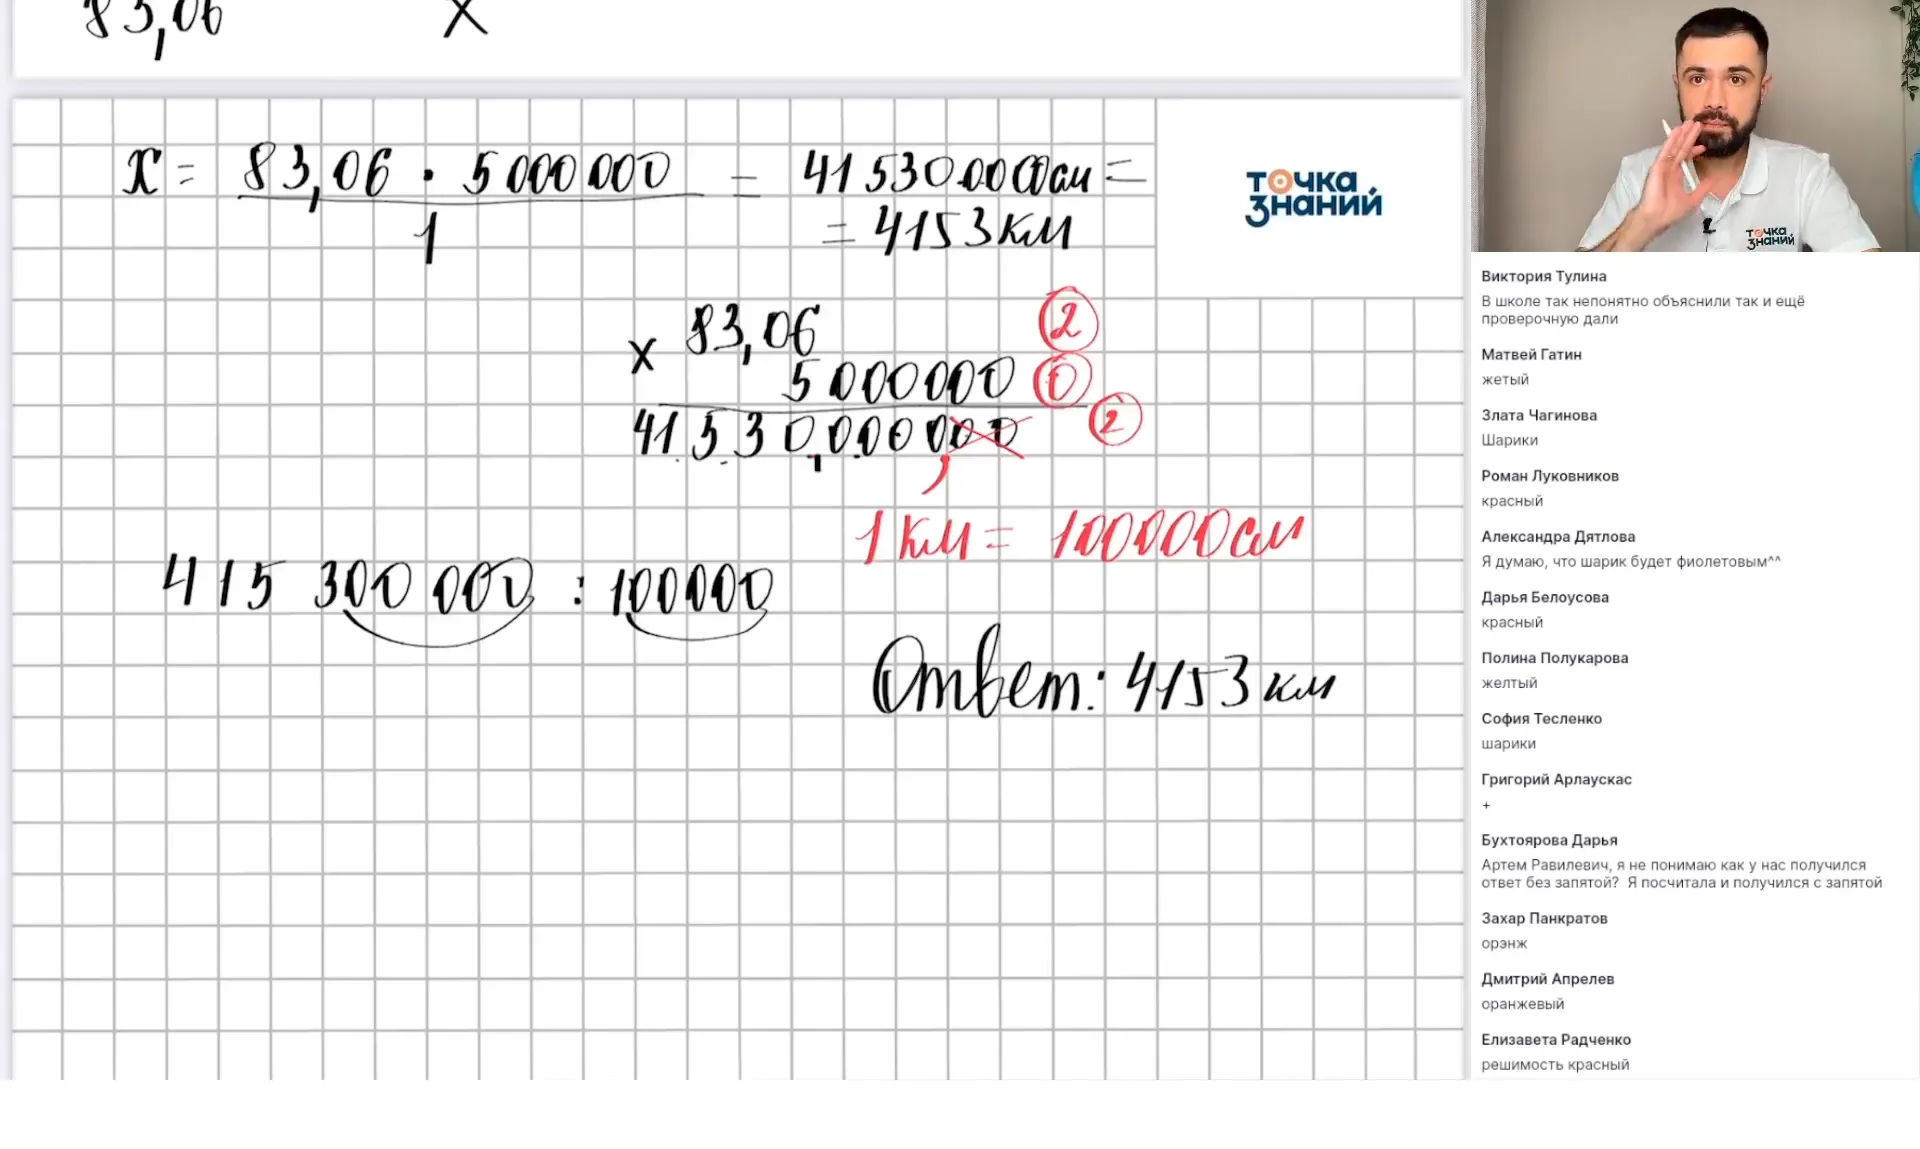 83,06 х
x = 83,06 · 5000000 = 415300000см =
1
= 4153км
83,06 2
х 5000000 0
41530000000 2
,
1км = 100000см
415 300 000 : 100000
Ответ: 4153км
точка знаний
точка знаний
Виктория Тулина
В школе так непонятно объяснили так и ещё
проверочную дали
Матвей Гатин
жетый
Злата Чагинова
Шарики
Роман Луковников
красный
Александра Дятлова
Я думаю, что шарик будет фиолетовым^^
Дарья Белоусова
красный
Полина Полукарова
желтый
София Тесленко
шарики
Григорий Арлаускас
+
Бухтоярова Дарья
Артем Равилевич, я не понимаю как у нас получился
ответ без запятой? Я посчитала и получился с запятой
Захар Панкратов
орэнж
Дмитрий Апрелев
оранжевый
Елизавета Радченко
решимость красный